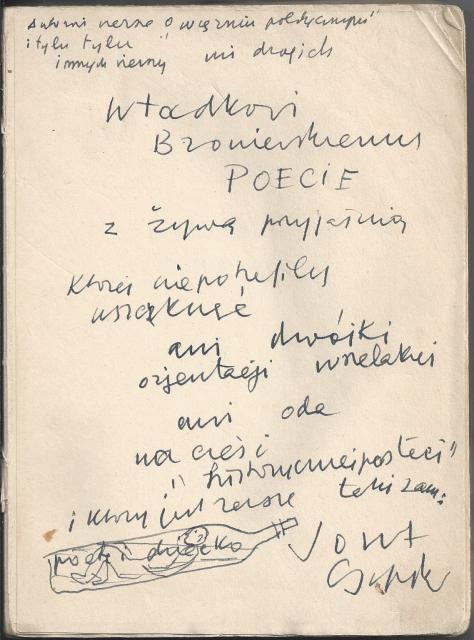 autorowi wiersza o "więźniu politycznym"
i tylu tylu
innych wierszy mi drogich
Władkowi
Broniewskiemu
POECIE
z żywą przyjaźnią
której nie potrafiły
uszczknąć
ani dwójki
orjentacji wszelakiej
ani oda
na cześć
"historycznej postaci"
i który jest zawsze taki sam:
poeta i dziecko
Józef
Czapski